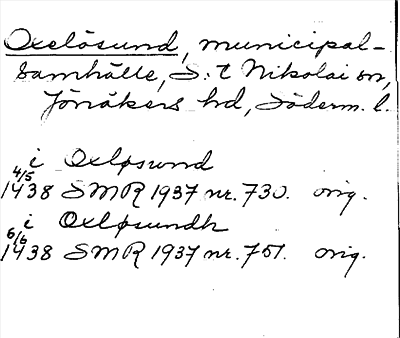 Oxelösund, municipal-
samhälle, S:t Nikolai sn,
Jönåkers hd, Söderm. l.
i Oxløsund
4/5
1438 SMR 1937 nr. 730. orig.
i Oxløsundh
6/6
1438 SMR 1937 nr. 751. orig.